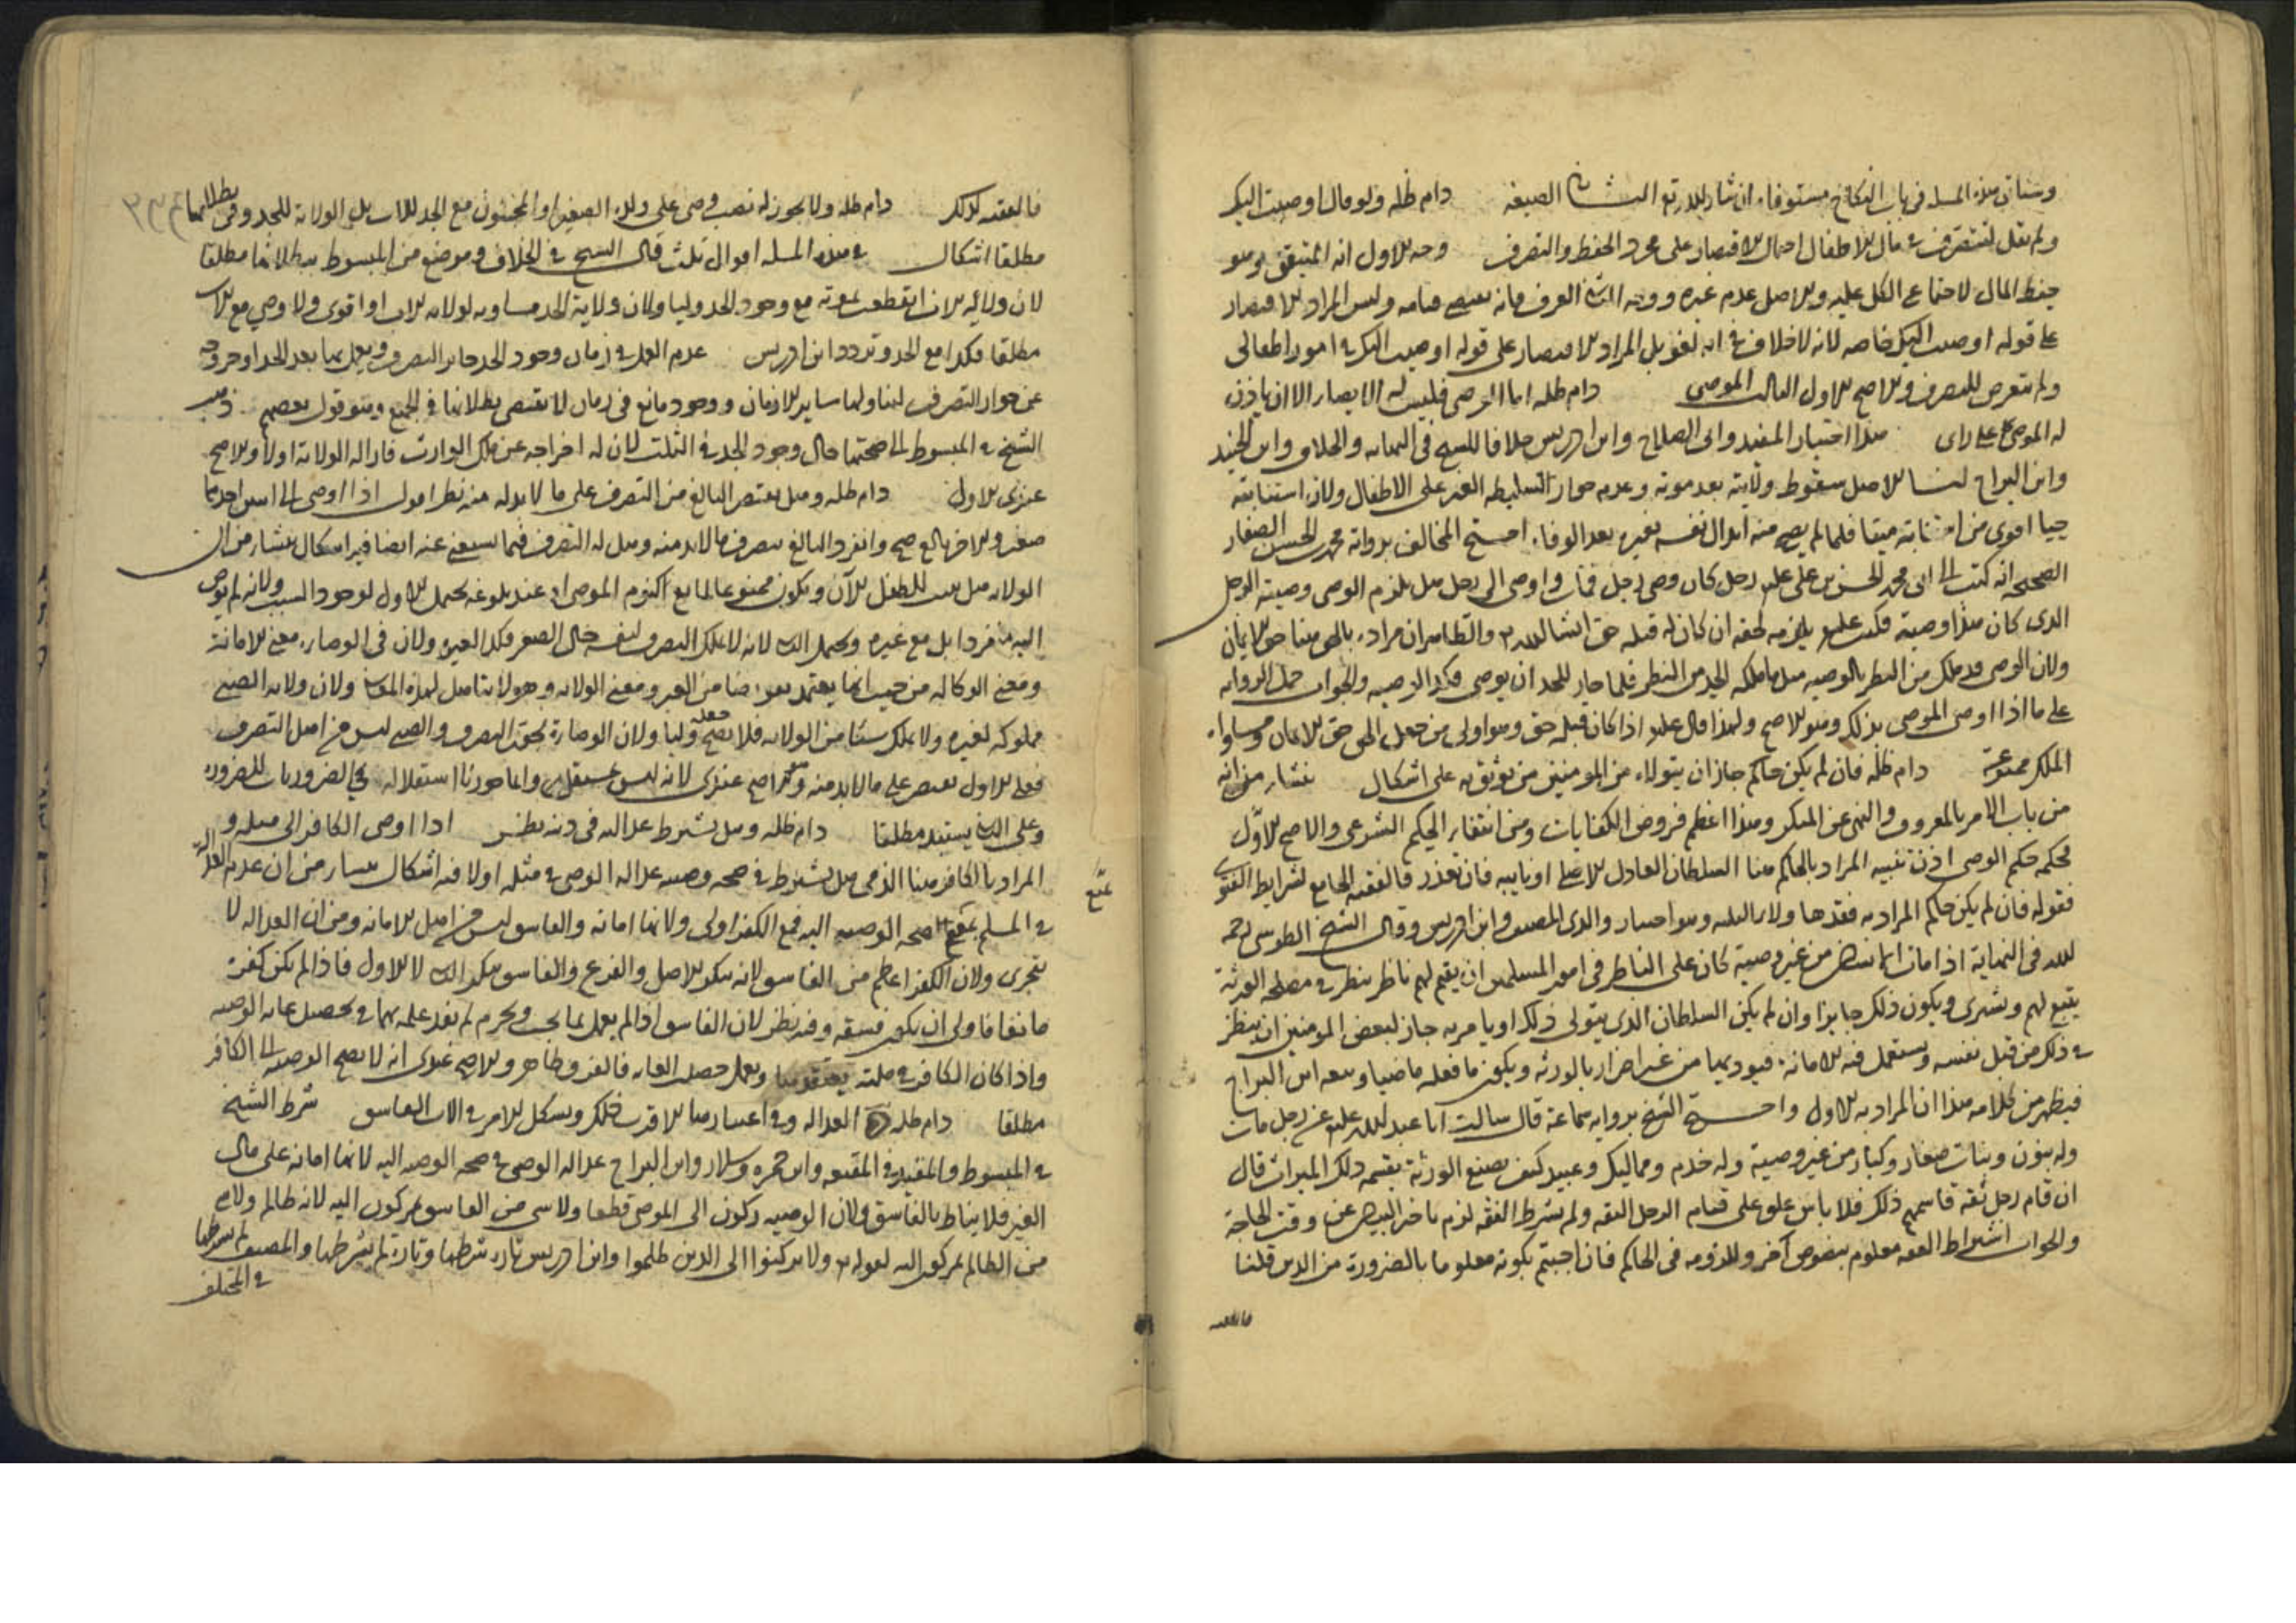 وستاتي هذه المسله في باب النكاح مستوفاه ان شاء الله تع الثاني الصيغة دام ظله ولو قال اوصيت اليك
ولم يقل لتتصرف في مال الاطفال احتمال الاقتصار على مجرد الحفظ والتصرف وجه الاول انه المتيقن وهو
حفظ المال لاجتماع الكل عليه والاصل عدم غيره ووجه الثاني العرف فانه يقتضي وليس المراد الاقتصار
على قوله اوصيت اليك خاصه لانه لا خلاف في انه لغو بل المراد الاقتصار على قوله اوصيت اليك في امور اطفالي
ولم يتعرض للتصرف والاصح الاول الثالث الموصى دام ظله اما الوصي فليس له الايصاء الا ان ياذن
له الموصي على راى هذا اختيار المفيد وابى الصلاح وابن ادريس خلافا للشيخ في النهايه والخلاف وابن الجنيد
وابن البراج لنا الاصل سقوط ولايته بعد موته وعدم جواز تسليطه الغير على الاطفال ولان استنابته
حيا اقوى من استنابته ميتا فلما لم يصح منه ابدال نفسه بغيره بعد الوفاه احتج المخالف برواية محمد بن الحسن الصفار
الصحيحه انه كتب الى ابى محمد الحسن بن علي عليه رجل كان وصي رجل فمات واوصى الى رجل هل يلزم الوصي وصيه الرجل
الذى كان هذا وصيه فكتب عليه يلزمه بحقه ان كان له قبله حق انشاالله والظاهر ان مراده بالحق هنا حق الايمان
ولان الوصي قد ملك من النظر بالوصيه مثل ما ملكه الجد من النظر فلما جاز للجد ان يوصي فكذا الوصيه والجواب حمل الروايه
على ما اذا اوصى الموصي بذلك وهو الاصح ولهذا قال عليه اذا كان قبله حق وهو اولى من حمل الحق حق الايمان ومساواه
الملك ممنوعة دام ظله فان لم يكن حاكم جاز ان يتولاه من المومنين من يوثق به على اشكال ينشا من انه
من باب الامر بالمعروف والنهى عن المنكر وهذا اعظم فروض الكفايات ومن انتفاء الحكم الشرعي والاصح الاول
فحكمه حكم الوصي اذن تنبيه المراد بالحاكم هنا السلطان العادل الاصلي او نايبه فان تعذر فالفقيه الجامع لشرايط الفتوى
فقوله فان لم يكن حاكم المراد به فقد هاولاء الثلثه وهو اختيار والدى المصنف وابن ادريس وقال الشيخ الطوسي رحمه
الله في النهاية اذا مات انسان من غير وصية كان على الناظر في امور المسلمين ان يقيم لهم ناظر ينظر في مصلحه الورثة
يبيع لهم ويشترى ويكون ذلك جايزا وان لم يكن السلطان الذى يتولى ذلك او يامر به جاز لبعض المومنين ان ينظر
في ذلك من قبل نفسه ويستعمل فيه الامانة فيوديها من غير اضرار بالورثه ويكون ما فعله ماضيا وتبعه ابن البراج
فيظهر من كلامه هذا ان المراد به الاول واحتج الشيخ بروايه سماعة قال سالت ابا عبد الله عليه عن رجل مات
وله بنون وبنات صغار وكبار من غير وصية وله خدم ومماليك وعبيد كيف يصنع الورثة بقسمه ذلك الميراث قال
ان قام رجل ثقه قاسمهم ذلك فلا باس علق على قيام الرجل الثقه ولم يشرط الفقه لزم تاخر البيان عن وقت الحاجة
والجواب اشتراط الفقه معلوم بنصوص آخر وللزومه في الحاكم فان اجبتم بكونه معلوما بالضرورة من الدين قلنا
فالفقه
فالفقيه كذلك دام ظله ولا يجوز له نصب وصي على ولده الصغير او المجنون مع الجد للاب بل الولاية للجد وفي بطلانها
مطلقا اشكال في هذه المسله اقوال ثلث قال الشيخ في الخلاف وموضع من المبسوط ببطلانها مطلقا
لان ولايه الاب انقطعت بموته مع وجود الجد وليا ولان ولاية الجد مساويه لولايه الاب او اقوى ولا وصي مع الاب
مطلقا فكذا مع الجد وتردد ابن ادريس عدم العمل في زمان وجود الجد جايز التصرف ويعمل بها بعد الجد او خروجه
عن جواز التصرف لتناولها ساير الازمان ووجود مانع في زمان لا يقتضي بطلانها في الجميع وهو قول بعضهم ذهب
الشيخ في المبسوط الى صحتها حال وجود الجد في الثلث لان له اخراجه عن ملك الوارث فازاله الولاية اولى والاصح
عندى الاول دام ظله وهل يقتصر البالغ من التصرف على ما لابد له منه نظر اقول اذا اوصى الى اثنين احدهما
صغير والاخر بالغ صح وانفرد البالغ بتصرف ما لابد منه وهل له التصرف فيما يستغنى عنه ايضا فيه اشكال ينشا من ان
الولايه هل تثبت للطفل الآن ويكون ممنوعا لمانع عند بلوغه يحتمل الاول لوجود السبب ولانه لم يوص
اليه منفردا بل مع غيره ويحتمل الثاني لانه لا يملك التصرف لنفسه حال الصغر فكذا لغيره ولان في الوصايه معنى الامانة
ومعنى الوكاله من حيث انها يعتمد تفويضا من الغير ومعنى الولايه وهو لا يتاهل لهذه المعاني ولان ولايه الصبي
مملوكه لغيره ولا يملك شيئا من الولايه فلا يصح جعله وليا ولان الوصاية تحقق التصرف والصبي ليس من اهل التصرف
فعلى الاول يقتصر على ما لابد منه وهو الاصح عندى لانه ليس بمستقل وانما جوزنا استقلاله في الضروريات للضرورة
وعلى الثاني يستبد مطلقا دام ظله وهل يشترط عدالته في دينه نظر اذا اوصى الكافر الى مثله و
المراد بالكافر هنا الذمى هل يشترط في صحه وصيته عداله الوصي في مثله اولا فيه اشكال ينشا من ان عدم العداله
في المسلم تمنع صحه الوصيه اليه فمع الكفر اولى ولانها امانه والفاسق ليس من اهل الامانه ومن ان العداله لا
تتجزى ولان الكفر اعظم من الفاسق لانه ينكر الاصل والفرع والفاسق ينكر الثاني لا الاول فاذا لم يكن كفره
مانعا فاولى ان يكون فسقه وفيه نظر لان الفاسق اذا لم يعمل بما يجب ويحرم لم يفد علمه بهما في تحصيل غايه الوصيه
واذا كان الكافر في ملته يعتقدهما ويعمل حصلت الغايه فالفرق ظاهر والاصح عندى انه لا يصح الوصيه الى الكافر
مطلقا دام ظله العداله وفي اعتبارها الاقرب ذلك ويشكل الامر في الاب الفاسق شرط الشيخ
في المبسوط والمفيد في المقنعه وابن حمزه وسلار وابن البراج عداله الوصي في صحه الوصيه اليه لانها امانه على مال
الغير فلا يناط بالفاسق ولان الوصيه ركون الى الموصى قطعا ولا شى من الفاسق بمركون اليه لانه ظالم ولا شى
من الظالم بمركون اليه لقوله تع ولا تركنوا الى الذين ظلموا وابن ادريس تارة شرطها وتارة لم يشرطها والمصنف لم يشرطها
في المختلف